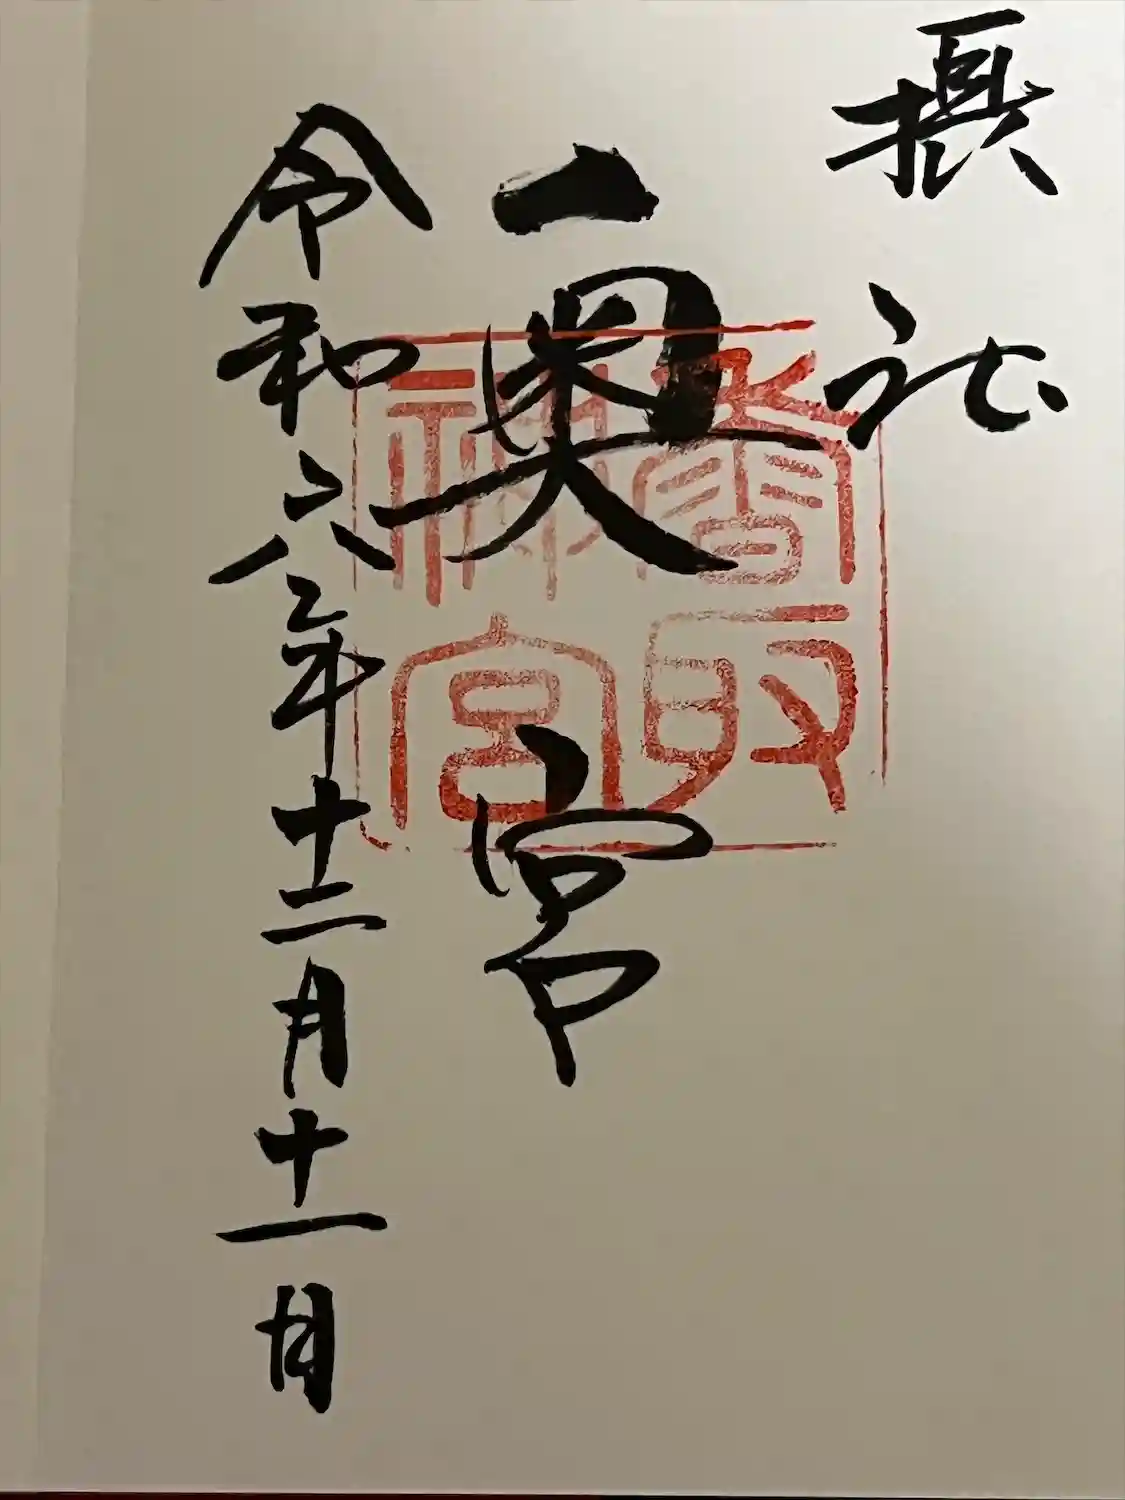 摂社
奥宮
香取
神宮
令和六年十二月十一日